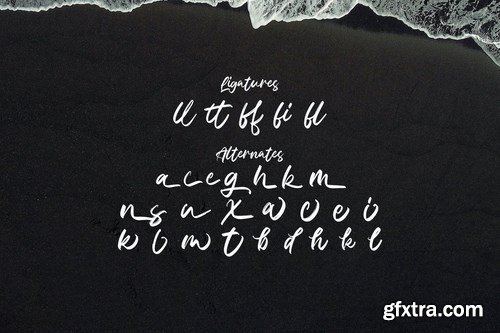 Ligatures
ll tt ff fi fl
Alternates
a c e g h k m
n s u x a v o e i
k l m t b d h k l
gfxtra.com